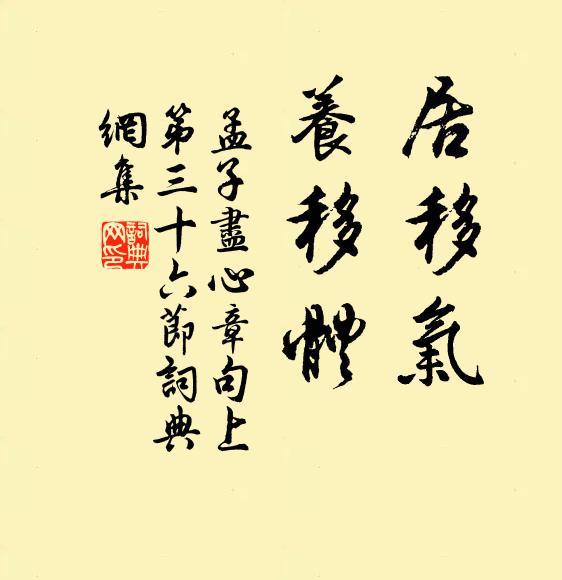 居移氣
養移體
孟子盡心章句上
第三十六節詞典
網集
詞典
网印